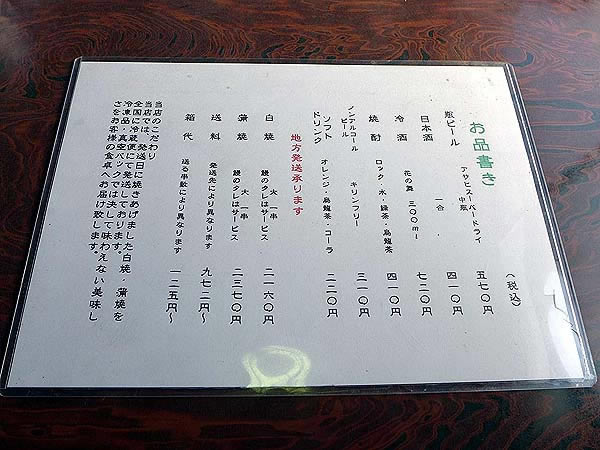 お品書き
(税込)
瓶ビール アサヒスーパードライ 中瓶 五七〇円
日本酒 一合 四一〇円
冷酒 花の舞 三〇〇ml 七二〇円
焼酎 ロック・水・緑茶・烏龍茶 四一〇円
ノンアルコールビール キリンフリー 三一〇円
ソフトドリンク オレンジ・烏龍茶・コーラ 二二〇円
地方発送承ります
白焼 大一串 鰻のタレはサービス 二一六〇円
蒲焼 大一串 鰻のタレはサービス 二三七〇円
送料 発送先により異なります 九七二円〜
箱代 送る串数により異なります 一二五円〜
当店のこだわり
当店では、発送日に焼きあげました白焼・蒲焼を
全国に冷蔵便にて発送しております。
冷凍品・真空パックでは決して味わえない美味し
さをお客様の食卓へお届け致します。